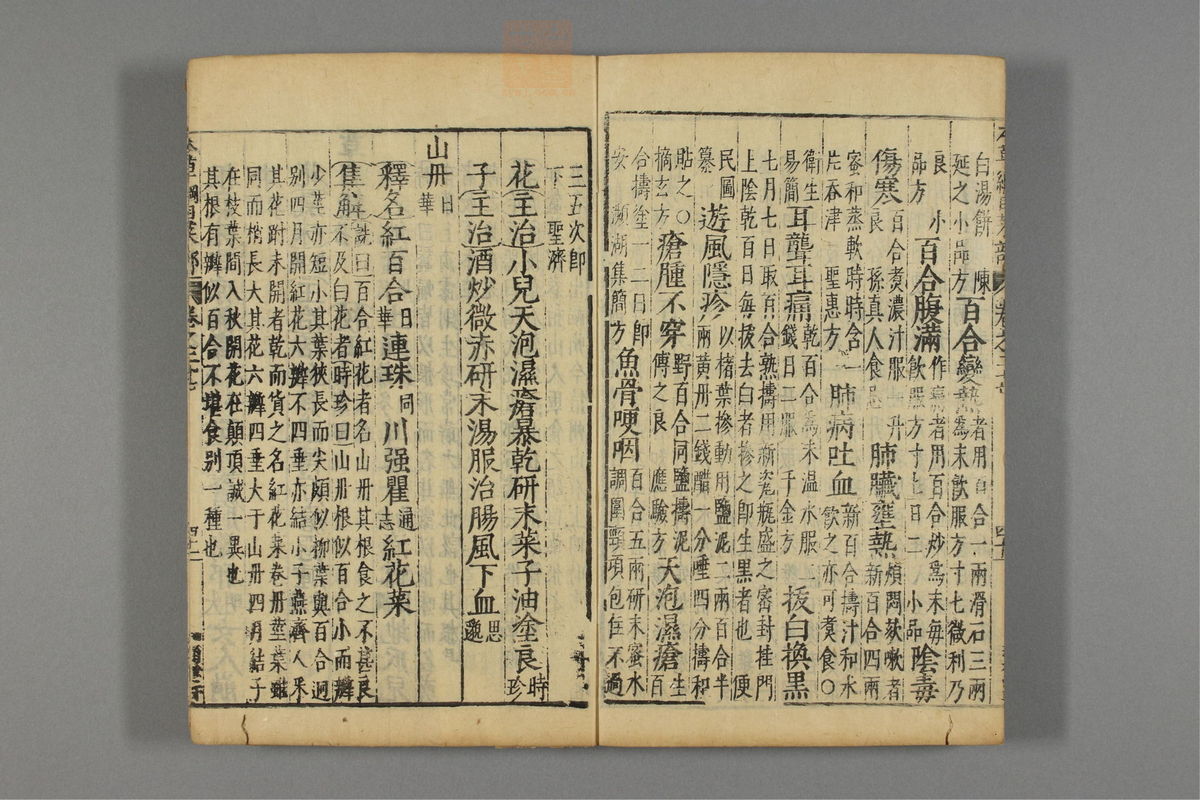 白湯餅 陳
延之小品方
百合變熱
者用百合一兩滑石三兩
為末飲服方寸匕微利乃
良 小
品方
百合腹滿
作痛者用百合炒為末每
飲服方寸匕日二 小品
陰毒
傷寒
百合煮濃汁服一升
良 孫真人食忌
肺臟壅熱
煩悶欬嗽者
新百合四兩
蜜和蒸軟時時含一
片吞津 聖惠方
肺病吐血
新百合擣汁和水
飲之亦可煮食○
衛生
易簡
耳聾耳痛
乾百合為末温水服二
錢日二服 千金方
拔白換黑
七月七日取百合熟擣用新瓷瓶盛之密封挂門
上陰乾百日每拔去白者摻之即生黑者也 便
民圖
纂
遊風隱疹
以楮葉摻動用鹽泥二兩百合半
兩黃丹二錢醋一分唾四分擣和
貼之○
摘玄方
瘡腫不穿
野百合同鹽擣泥
傅之良 應驗方
天泡濕瘡
生
百
合擣塗一二日即
安 瀕湖集簡方
魚骨哽咽
百合五兩研末蜜水
調圍頸項包住不過
三五次即
下 聖濟
花主治小兒天泡濕瘡暴乾研末菜子油塗良時珍
子主治酒炒微赤研末湯服治腸風下血思邈
山丹日華
釋名紅百合日華連珠同川强瞿通志紅花菜
集解
詵曰百合紅花者名山丹其根食之不甚良
不及白花者時珍曰山丹根似百合小而瓣
少莖亦短小其葉狹長而尖頗似柳葉與百合迥
別四月開紅花六瓣不四垂亦結小子燕齊人采
其花跗未開者乾而貨之名紅花菜卷丹莖葉雖
同而稍長大其花六瓣四垂大于山丹四月結子
在枝葉間入秋開花在顛頂誠一異也
其根有瓣似百合不堪食别一種也